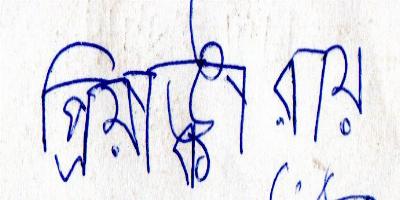 প্রিয়াঙ্কা রায়